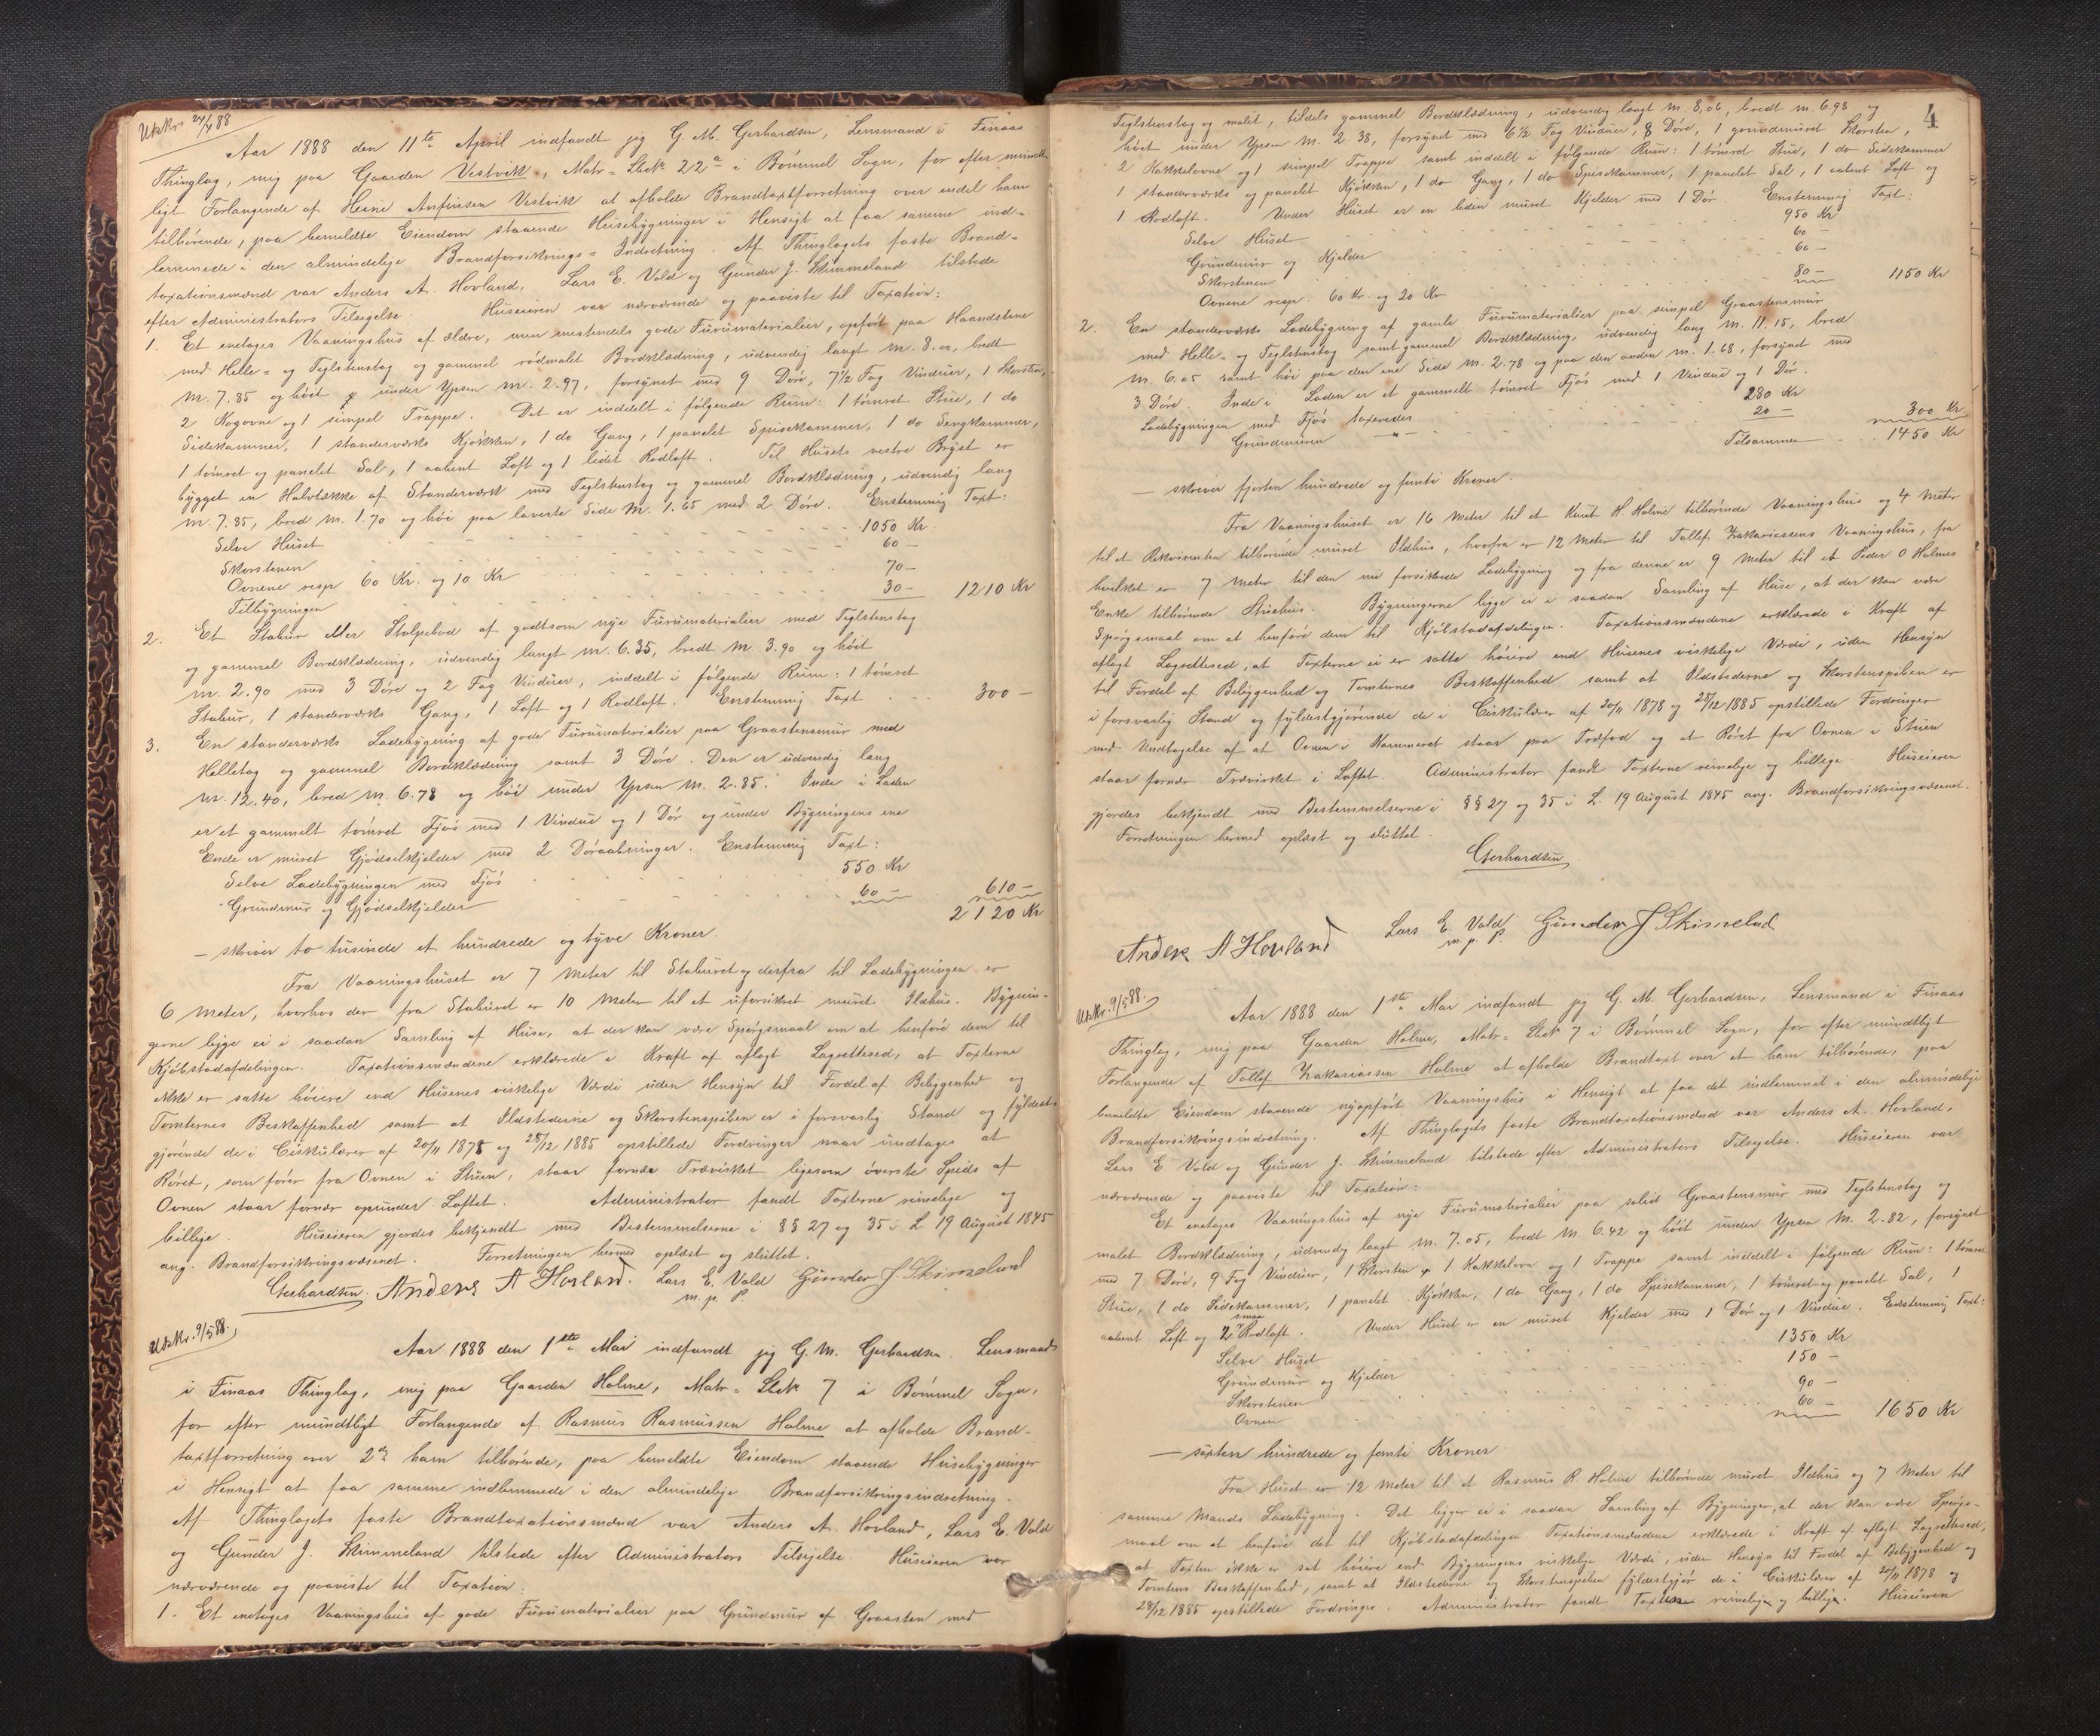 Utskr. 24/4 88
Aar 1888 den 11te April indfandt jeg G. M. Gerhardsen, Lensmand i Finaas
Thinglag, mig paa Gaarden Vestvik, Matr=Løb 22a i Bømmel Sogn, for efter mundt-
ligt Forlangende af Heine Anfinsen Vestvik at afholde Brandtaxtforretning over endel ham
tilhørende, paa bemeldte Eiendom staaende Husebygninger i Hensigt at faa samme ind-
lemmede i den almindelige Brandforsikrings=Indretning. Af Thinglagets faste Brand-
taxationsmænd var Anders A. Hovland, Lars E. Vold og Gunder J. Skimmeland tilstede
efter Administrators Tilsigelse. Huseieren var nærværende og paaviste til Taxation:
1. Et enetages Vaaningshus af ældre, men mestendels gode Furumaterialier, opført paa Haandstene
med Helle= og Teglstenstag og gammel rødmalet Bordklædning, udvendig langt M. 8.00, bredt
M. 7.85 og høit under Ypsen M. 2.97, forsynet med 9 Døre, 7½ Fag Vinduer, 1 Skorsten,
2 Kogovne og 1 simpel Trappe. Det er inddelt i følgende Rum: 1 tømret Stue, 1 do
Sidekammer, 1 standerværks Kjøkken, 1 do Gang, 1 panelet Spisekammer, 1 do Sengkammer,
1 tømret og panelet Sal, 1 aabent Loft og 1 lidet Rodloft. Til Husets vestre Bryst er
bygget en Halvtække af Standerværk med Teglstenstag og gammel Bordklædning, udvendig lang
M. 7.85, bred M. 1.70 og høi paa laveste Side M. 1.65 med 2 Døre. Enstemmig Taxt:
Selve Huset 1050 Kr.
Skorstenen 60 —
Ovnene resp 60 Kr. og 10 Kr 70 —
Tilbygningen 30 — 1210 Kr
2. Et Stabur eller Stolpebod af godtsom nye Furumaterialier med Teglstenstag
og gammel Bordklædning, udvendig langt M. 6.35, bredt M. 3.90 og høit
M. 2.90 med 3 Døre og 2 Fag Vinduer, inddelt i følgende Rum: 1 tømret
Stabur, 1 standerværks Gang, 1 Loft og 1 Rodloft. Enstemmig Taxt 300 —
3. En standerværks Ladebygning af gode Furumaterialier paa Graastensmur med
Helletag og gammel Bordklædning samt 3 Døre. Den er udvendig lang
M. 12.40, bred M. 6.78 og høi under Ypsen M. 2.85. Inde i Laden
er et gammelt tømret Fjøs med 1 Vindue og 1 Dør og under Bygningens ene
Ende er muret Gjødselkjelder med 2 Døraabninger. Enstemmig Taxt:
Selve Ladebygningen med Fjøs 550 Kr
Grundmur og Gjødselkjelder 60 — 610 —
2120 Kr
— skriver to tusinde et hundrede og tyve Kroner.
Fra Vaaningshuset er 7 Meter til Staburet og derfra til Ladebygningen er
6 Meter, hvorhos der fra Staburet er 10 Meter til et uforsikret muret Ildhus. Bygnin-
gerne ligge ei i saadan Samling af Huse, at der kan være Spørgsmaal om at henføre dem til
Kjøbstadafdelingen. Taxationsmændene erklærede i Kraft af aflagt Lagrettesed, at Taxterne
ikke er satte høiere end Husenes virkelige Værdi uden Hensyn til Fordel af Beliggenhed og
Tomternes Beskaffenhed samt at Ildstederne og Skorstenspiben er i forsvarlig Stand og fyldest-
gjørende de i Cirkulærer af 20/11 1878 og 28/12 1885 opstillede Fordringer naar undtages at
Røret, som fører fra Ovnen i Stuen, staar fornær Trævirket ligesom øverste Spids af
Ovnen staar fornær opunder Loftet. Administrator fandt Taxterne rimelige og
billige. Huseieren gjordes bekjendt med Bestemmelserne i §§ 27 og 35 i L. 19 August 1845
ang. Brandforsikringsvæsenet. Forretningen hermed oplæst og sluttet.
Gerhardsen. Anders A Hovland. Lars E. Vold Gunder J Skimelad
m. p. P
Utskr. 9/5 88.
Aar 1888 den 1ste Mai indfandt jeg G. M. Gerhardsen Lensmand
i Finaas Thinglag, mig paa Gaarden Holme, Matr=Løb 7 i Bømmel Sogn,
for efter mundtligt Forlangende af Rasmus Rasmussen Holme at afholde Brand-
taxtforretning over 2de ham tilhørende, paa bemeldte Eiendom staaende Husebygninger
i Hensigt at faa samme indlemmede i den almindelige Brandforsikringsindretning.
Af Thinglagets faste Brandtaxationsmænd var Anders A. Hovland, Lars E. Vold
og Gunder J. Skimmeland tilstede efter Administrators Tilsigelse. Huseieren var
nærværende og paaviste til Taxation:
1. Et enetages Vaaningshus af gode Furumaterialier paa Grundmur af Graasten med
4
Teglstenstag og malet, tildels gammel Bordklædning, udvendig langt M. 8,06, bredt M. 6.98 og
høit under Ypsen M. 2.38, forsynet med 6½ Fag Vinduer, 8 Døre, 1 grundmuret Skorsten,
2 Kakkelovne og 1 simpel Trappe samt inddelt i følgende Rum: 1 tømret Stue, 1 do Sidekammer
1 standerværks og panelet Kjøkken, 1 do Gang, 1 do Spisekammer, 1 panelet Sal, 1 aabent Loft og
1 Rodloft. Under Huset er en liden muret Kjelder med 1 Dør Enstemmig Taxt:
Selve Huset 950 Kr
Grundmur og Kjelder 60 —
Skorstenen 60 —
Ovnene resp. 60 Kr. og 20 Kr 80 — 1150 Kr
2. En standerværks Ladebygning af gamle Furumaterialier paa simpel Graastensmur
med Helle= og Teglstenstag samt gammel Bordklædning, udvendig lang M. 11.15, bred
M. 6.05 samt høi paa den ene Side M. 2.78 og paa den anden M. 1.68, forsynet med
3 Døre. Inde i Laden er et gammelt tømret Fjøs med 1 Vindue og 1 Dør.
Ladebygningen med Fjøs taxeredes 280 Kr
Grundmuren —"— 20 — 300 Kr
Tilsammen 1450 Kr
— skriver fjorten hundrede og femti Kroner.
Fra Vaaningshuset er 16 Meter til et Knut H. Holme tilhørende Vaaningshus og 4 Meter
til et Rekvirenten tilhørende muret Ildhus, hvorfra er 12 Meter til Tollef Zakariassens Vaaningshus, fra
hvilket er 7 Meter til den nu forsikrede Ladebygning og fra denne er 9 Meter til et Peder O Holmes
Enke tilhørende Stuehus. Bygningerne ligge ei i saadan Samling af Huse, at der kan være
Spørgsmaal om at henføre dem til Kjøbstadafdelingen. Taxationsmændene erklærede i Kraft af
aflagt Lagrettesed, at Taxterne ei er satte høiere end Husenes virkelige Værdi, uden Hensyn
til Fordel af Beliggenhed og Tomternes Beskaffenhed samt at Ildstederne og Skorstenspiben er
i forsvarlig Stand og fyldestgjørende de i Cirkulærer af 20/11 1878 og 28/12 1885 opstillede Fordringer
med Undtagelse af at Ovnen i Kammeret staar paa Træfod og at Røret fra Ovnen i Stuen
staar fornær Trævirket i Loftet. Administrator fandt Taxterne rimelige og billige. Huseieren
gjordes bekjendt med Bestemmelserne i §§ 27 og 35 i L. 19 August 1845 ang. Brandforsikringsvæsenet.
Forretningen hermed oplæst og sluttet.
Gerhardsen
Anders A Hovland Lars E. Vold Gunder J Skimelad
m. p. P.
Utskr. 9/5 88.
Aar 1888 den 1ste Mai indfandt jeg G. M. Gerhardsen, Lensmand i Finaas
Thinglag, mig paa Gaarden Holme, Matr=Løb 7 i Bømmel Sogn, for efter mundtligt
Forlangende af Tollef Zakariassen Holme at afholde Brandtaxt over et ham tilhørende, paa
bemeldte Eiendom staaende nyopført Vaaningshus i Hensigt at faa det indlemmet i den almindelige
Brandforsikringsindretning. Af Thinglagets faste Brandtaxationsmænd var Anders A. Hovland,
Lars E Vold og Gunder J. Skimmeland tilstede efter Administrators Tilsigelse. Huseieren var
nærværende og paaviste til Taxation:
Et enetages Vaaningshus af nye Furumaterialier paa solid Graastensmur med Teglstenstag og
malet Bordklædning, udvendig langt M. 7.05, bredt M. 6.42 og høit under Ypsen M. 2.82, forsynet
med 7 Døre, 9 Fag Vinduer, 1 Skorsten 1 Kakkelovn og 1 Trappe samt inddelt i følgende Rum: 1 tømret
Stue, 1 do Sidekammer, 1 panelet Kjøkken, 1 do Gang, 1 do Spisekammer, 1 tømret og panelet Sal, 1
aabent Loft og 2 smaa Rodloft. Under Huset er en muret Kjelder med 1 Dør og 1 Vindue. Enstemmig Taxt:
Selve Huset 1350 Kr
Grundmur og Kjelder 150 —
Skorstenen 90 —
Ovnen 60 — 1650 Kr
— sexten hundrede og femti Kroner.
Fra Huset er 12 Meter til et Rasmus R. Holme tilhørende muret Ildhus og 7 Meter til
samme Mands Ladebygning. Det ligger ei i saadan Samling af Bygninger, at der kan være Spørgs-
maal om at henføre det til Kjøbstadafdelingen. Taxationsmændene erklærede i Kraft af aflagt Lagrettesed,
at Taxten ikke er sat høiere end Bygningens virkelige Værdi, uden Hensyn til Fordel af Beliggenhed og
Tomtens Beskaffenhed, samt at Ildstederne og Skorstenspiben fyldestgjør de i Cirkulærer af 20/11 1878 og
28/12 1885 opstillede Fordringer. Administrator fandt Taxten rimelig og billig. Huseieren